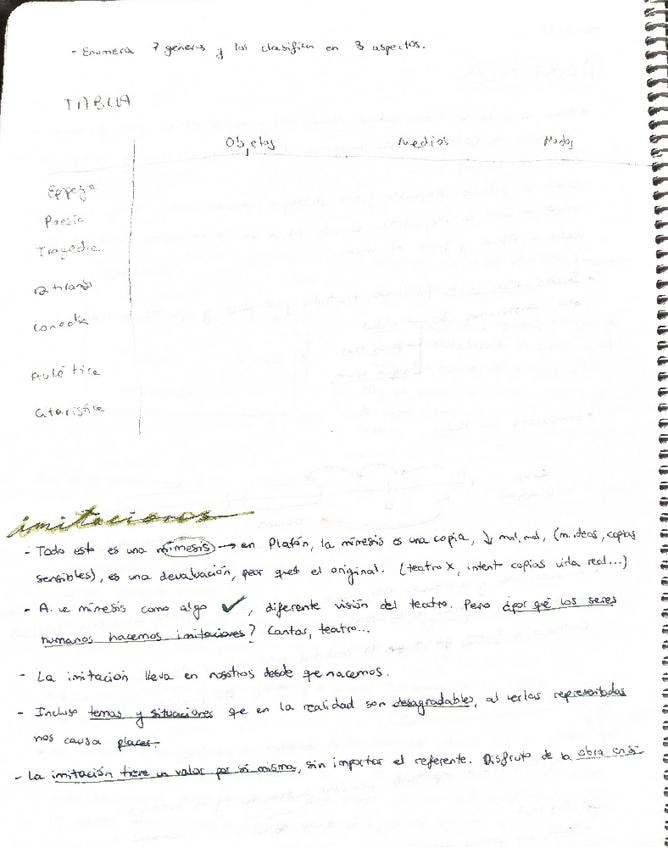 - Enumera 7 géneros y los clasifica en 3 aspectos.
TABLA
Objetos Medios Modos
Epopeya
Poesía
Tragedia
Ditirambo
Comedia
Aulética
Citarística
imitaciones
- Todo esto es una mímesis → en Platón, la mímesis es una copia, ↓ (m. ideas, copias
sensibles), es una devaluación, peor que el original. (teatro X, intent copias vida real...)
- A. ve mímesis como algo ✓, diferente visión del teatro. Pero ¿por qué los seres
humanos hacemos imitaciones? Cantar, teatro...
- La imitación lleva en nosotros desde qe nacemos.
- Incluso temas y situaciones qe en la realidad son desagradables, al verlas representadas
nos causa placer.
- La imitación tiene un valor por sí misma, sin importar el referente. Disfruto de la obra en sí